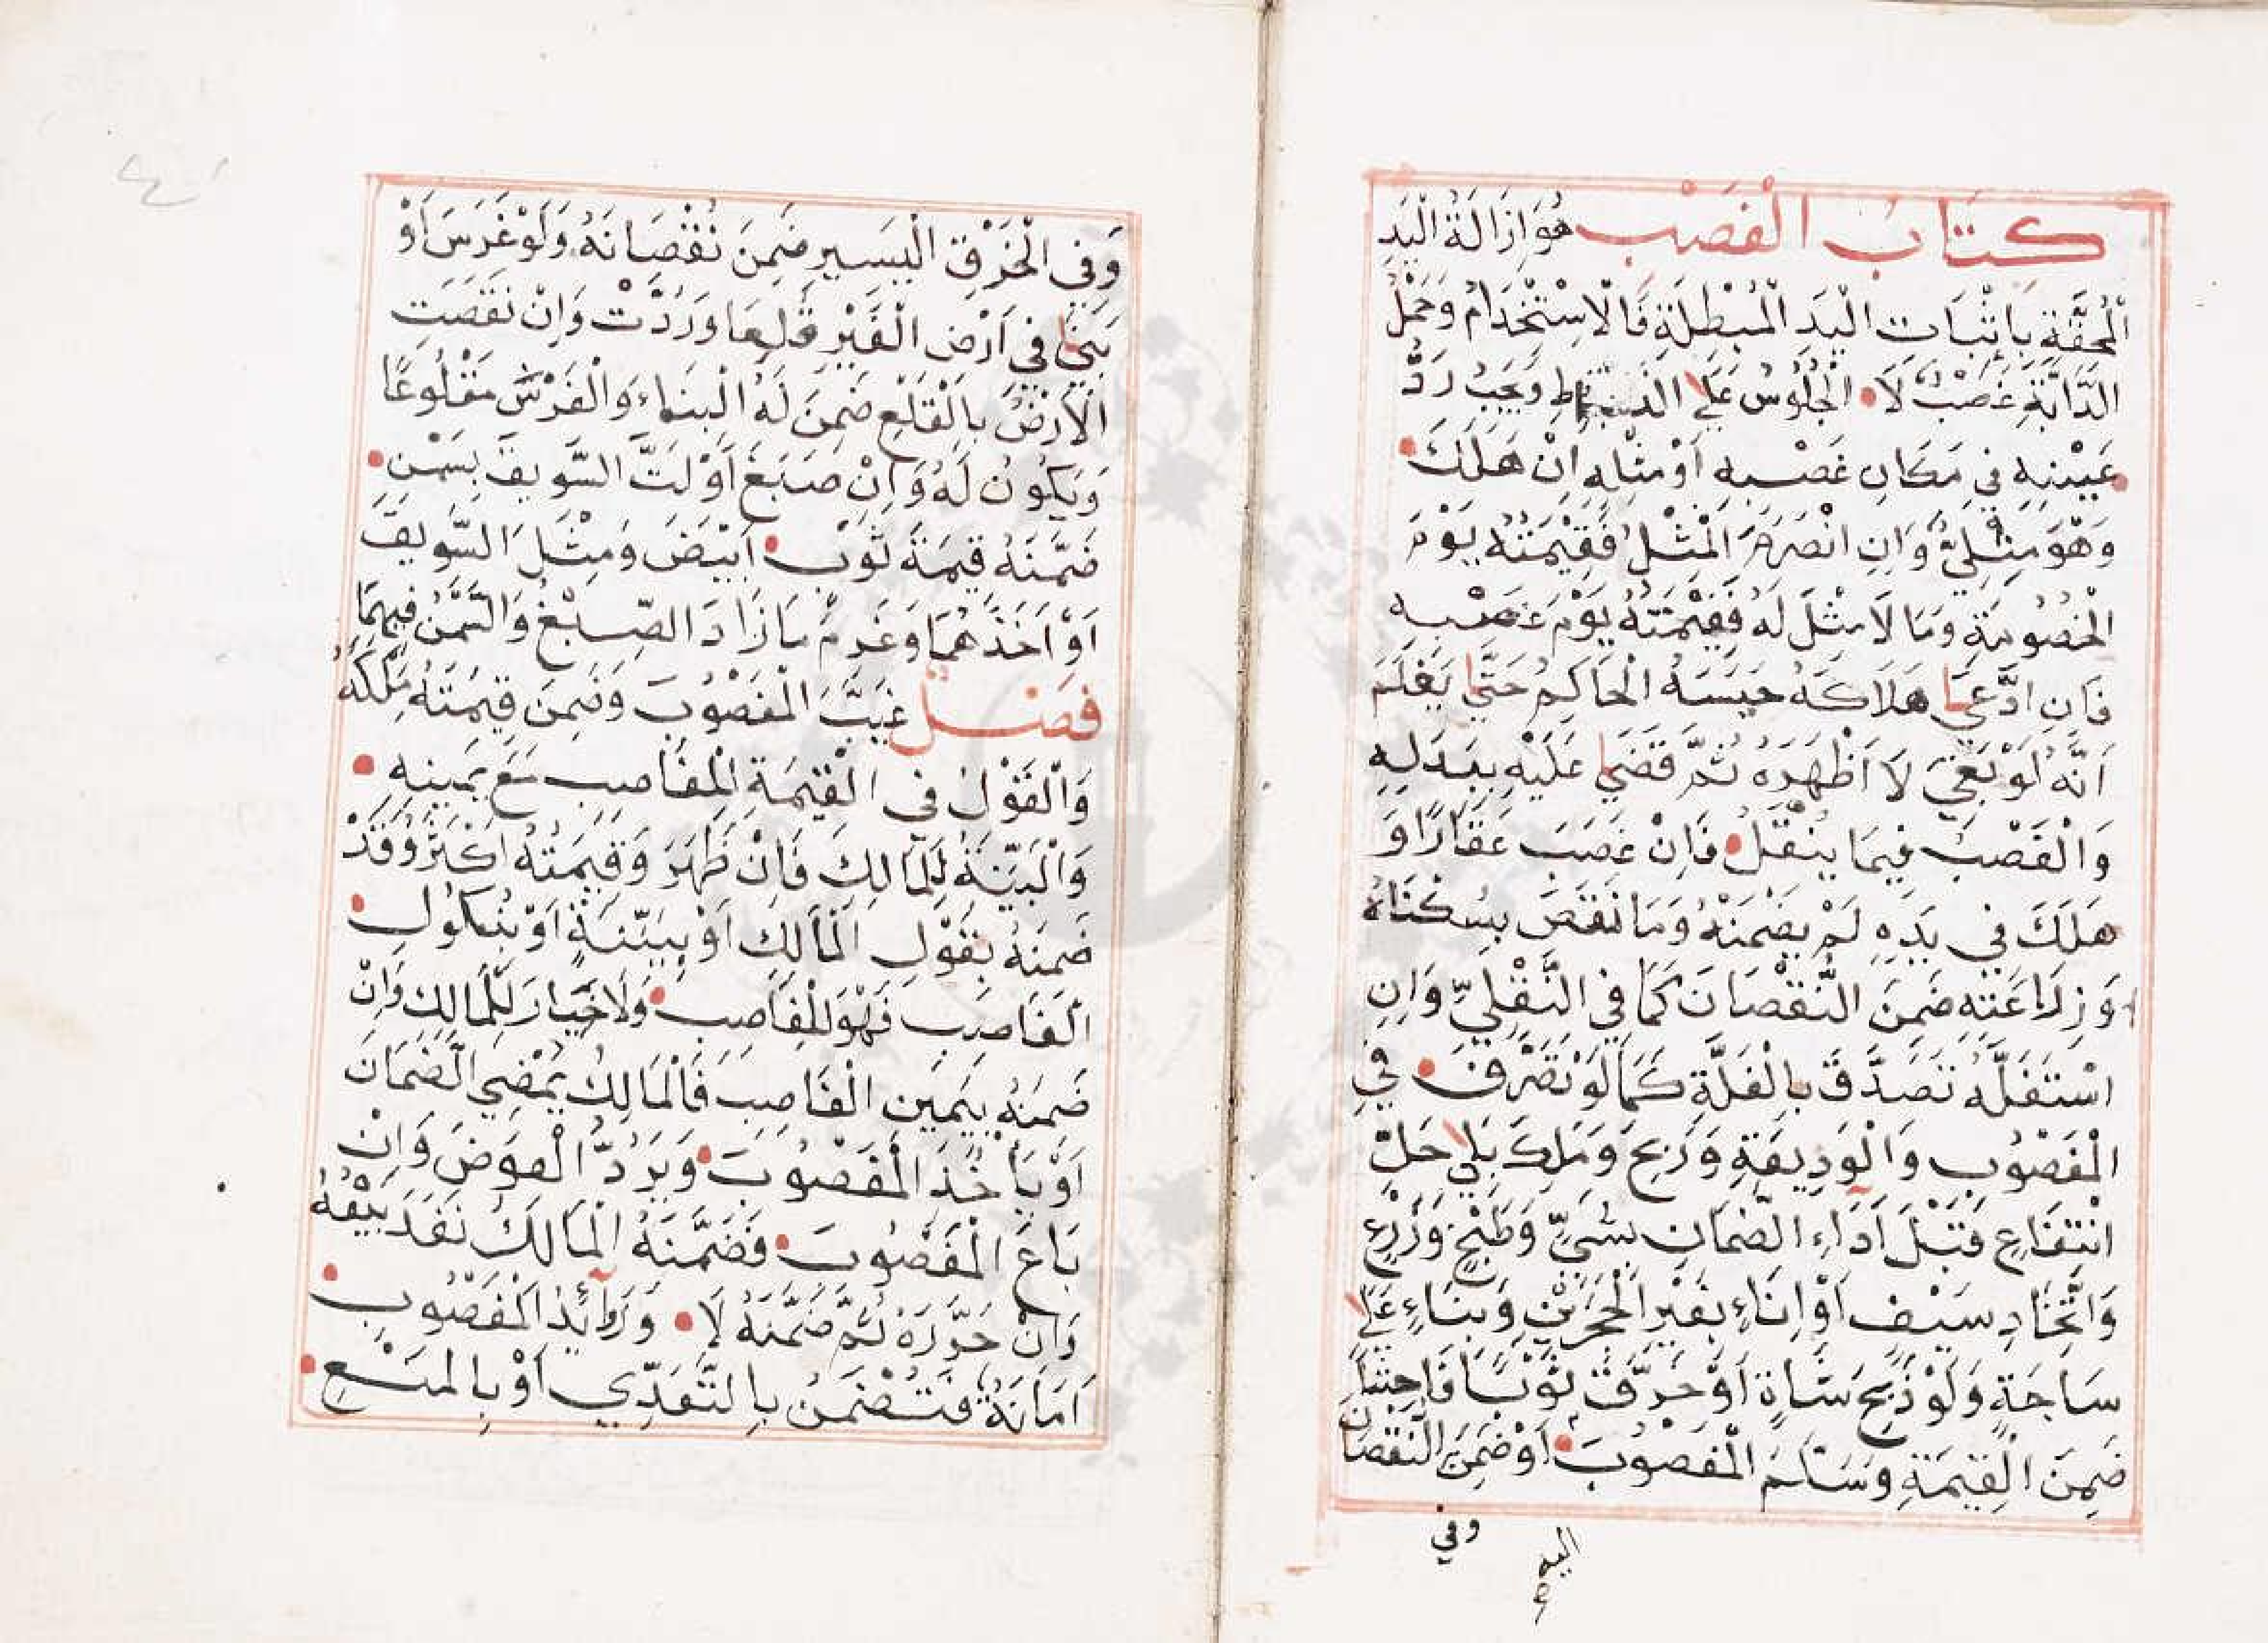 كِتَابُ الْغَصْبِ هُوَ اِزَالَةُ الْيَدِ
الْمُحِقَّةِ بِاِثْبَاتِ الْيَدِ الْمُبْطِلَةِ فَالْاِسْتِخْدَامُ وَحَمْلُ
الدَّابَّةِ غَصْبٌ لَا الْجُلُوْسُ عَلَى الْبِسَاطِ وَيَجِبُ رَدُّ
عَيْنِهِ فِي مَكَانِ غَصْبِهِ اَوْ مِثْلِهِ اِنْ هَلَكَ
وَهُوَ مِثْلِيٌّ وَاِنِ انْصَرَمَ الْمِثْلُ فَقِيْمَتُهُ يَوْمَ
الْخُصُوْمَةِ وَمَا لَا مِثْلَ لَهُ فَقِيْمَتُهُ يَوْمَ غَصْبِهِ
فَاِنِ ادَّعَى هَلَاكَهُ حَبَسَهُ الْحَاكِمُ حَتَّى يَعْلَمَ
اَنَّهُ لَوْ بَقِيَ لَاَظْهَرَهُ ثُمَّ قَضَى عَلَيْهِ بِبَدَلِهِ
وَالْغَصْبُ فِيْمَا يُنْقَلُ فَاِنْ غَصَبَ عَقَارًا وَ
هَلَكَ فِي يَدِهِ لَمْ يَضْمَنْهُ وَمَا نَقَصَ بِسُكْنَاهُ
وَزِرَاعَتِهِ ضَمِنَ النُّقْصَانَ كَمَا فِي النَّقْلِيِّ وَاِنِ
اسْتَغَلَّهُ تَصَدَّقَ بِالْغَلَّةِ كَمَا لَوْ تَصَرَّفَ فِي
الْمَغْصُوْبِ وَالْوَدِيْعَةِ وَرَبِحَ وَمَلَكَ بِلَا حِلِّ
انْتِفَاعٍ قَبْلَ اَدَاءِ الضَّمَانِ بِشَيٍّ وَطَبْخٍ وَزَرْعٍ
وَاتِّخَاذِ سَيْفٍ اَوْ اِنَاءٍ بِغَيْرِ الْحَجَرَيْنِ وَبِنَاءٍ عَلَى
سَاجَةٍ وَلَوْ ذَبَحَ شَاةً اَوْ خَرَّقَ ثَوْبًا فَاحِشًا
ضَمِنَ الْقِيْمَةِ وَسَلَّمَ الْمَغْصُوْبَ اَوْ ضَمِنَ النُّقْصَانَ
وفي
وَفِي الْخَرْقِ الْيَسِيرِ ضَمِنَ نُقْصَانَهُ وَلَوْ غَرَسَ اَوْ
بَنَى فِي اَرْضِ الْغَيْرِ قُلِعَا وَرُدَّتْ وَاِنْ نَقَصَتِ
الْاَرْضُ بِالْقَلْعِ ضَمِنَ لَهُ الْبِنَاءَ وَالْغَرْسَ مَقْلُوعًا
وَيَكُونُ لَهُ وَاِنْ صَبَغَ اَوْ لَتَّ السَّوِيقَ بِسَمْنٍ
ضَمَّنَهُ قِيمَةَ ثَوْبٍ اَبْيَضَ وَمِثْلَ السَّوِيقِ
اَوْ اَخَذَهُمَا وَغَرِمَ مَا زَادَ الصِّبْغُ وَالسَّمْنُ فِيهِمَا
فَصْلٌ غَيَّبَ الْمَغْصُوْبَ وَضَمِنَ قِيمَتَهُ مَلَكَهُ
وَالْقَوْلُ فِي الْقِيْمَةِ لِلْغَاصِبِ مَعَ يَمِينِهِ
وَالْبَيِّنَةُ لِلْمَالِكِ فَاِنْ ظَهَرَ وَقِيمَتُهُ اَكْثَرُ وَقَدْ
ضَمِنَهُ بِقَوْلِ الْمَالِكِ اَوْ بِبَيِّنَةٍ اَوْ بِنُكُولِ
الْغَاصِبِ فَهُوَ لِلْغَاصِبِ وَلَا خِيَارَ لِلْمَالِكِ وَاِنْ
ضَمِنَهُ بِيَمِينِ الْغَاصِبِ فَالْمَالِكُ يُمْضِي الضَّمَانَ
اَوْ يَأْخُذُ الْمَغْصُوْبَ وَيَرُدُّ الْعِوَضَ وَاِنْ
بَاعَ الْمَغْصُوبَ فَضَمَّنَهُ الْمَالِكُ نَفَذَ بَيْعُهُ
وَاِنْ حَرَّرَهُ ثُمَّ ضَمَّنَهُ لَا وَزَوَائِدُ الْمَغْصُوبِ
اَمَانَةٌ فَتُضْمَنُ بِالتَّعَدِّي اَوْ بِالْمَنْعِ